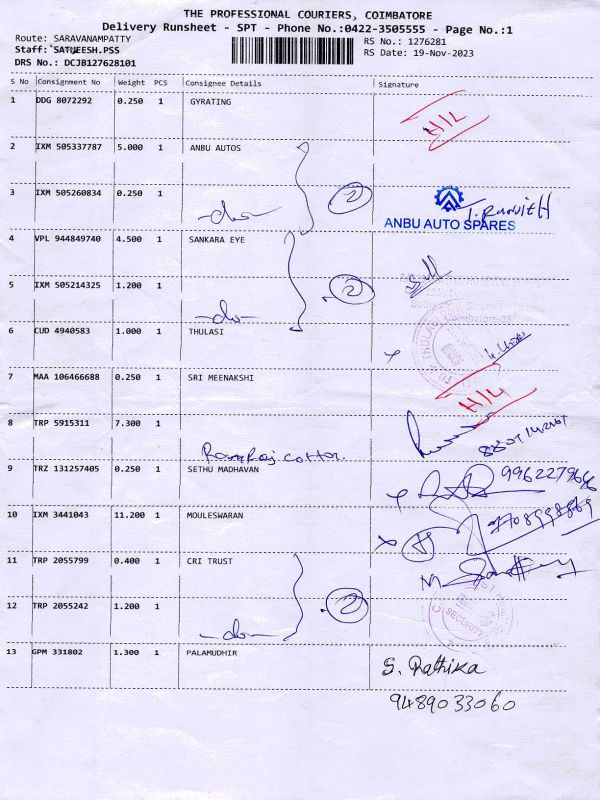 THE PROFESSIONAL COURIERS, COIMBATORE
Delivery Runsheet - SPT - Phone No.:0422-3505555 - Page No.:1
Route: SARAVANAMPATTY
RS No.: 1276281
Staff: SATHEESH.PSS
RS Date: 19-Nov-2023
DRS No.: DCJB127628101
S No Consignment No Weight PCS Consignee Details Signature
1 DDG 8072292 0.250 1 GYRATING
H/L
2 IXM 505337787 5.000 1 ANBU AUTOS
3 IXM 505260834 0.250 1
-do- 2
ANBU AUTO SPARES
4 VPL 944849740 4.500 1 SANKARA EYE
5 IXM 505214325 1.200 1
-do- 2
6 CUD 4940583 1.000 1 THULASI
7 MAA 106466688 0.250 1 SRI MEENAKSHI
H/L
8 TRP 5915311 7.300 1
Ramraj cotton
9 TRZ 131257405 0.250 1 SETHU MADHAVAN
10 IXM 3441043 11.200 1 MOULESWARAN
11 TRP 2055799 0.400 1 CRI TRUST
12 TRP 2055242 1.200 1
-do- 2
SECURITY
13 GPM 331802 1.300 1 PALAMUDHIR
S. Rathika
9489033060